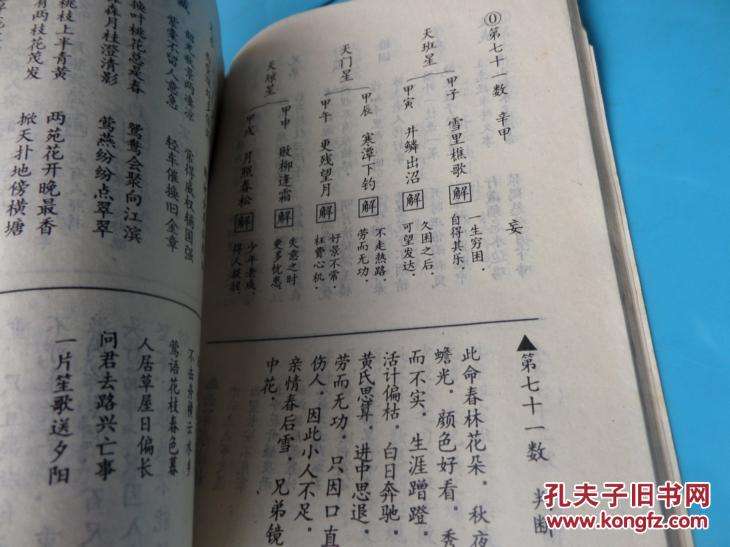 第七十一数 辛甲
天班星
甲子 雪里樵歌 解 一生穷困。自得其乐。
甲寅 井鳞出沼 解 久困之后。可望发达。
天门星
甲辰 寒潭下钓 解 不走热路。劳而无功
甲午 更残望月 解 好景不常。枉费心机。
甲申 败柳逢霜 解 失意之时 更多忧患
甲戌 月照春松 解 少年老成。
妄
▲第七十一数 判断
此命春林花朵。秋夜
蟾光。颜色好看。秀
而不实。生涯蹭蹬。
活计偏枯。白日奔驰。
黄氏思算。进中思退。
劳而无功。只因口直
伤人。因此小人不足。
亲情春后雪。兄弟镜
中花。
桃枝上半青黄
有两枝花茂发
换叶桃花总是春
月桂澄清影
两苑花开晚最香
掀天扑地傍横塘
鸳鸯会聚向江滨
莺燕纷纷点翠翠
紫要不留人意急
常得威权辅国强
轻车催换旧金章
莺语花枝春色暮
人居草屋日偏长
问君去路兴亡事
一片笙歌送夕阳
孔夫子旧书网
www.kongfz.com